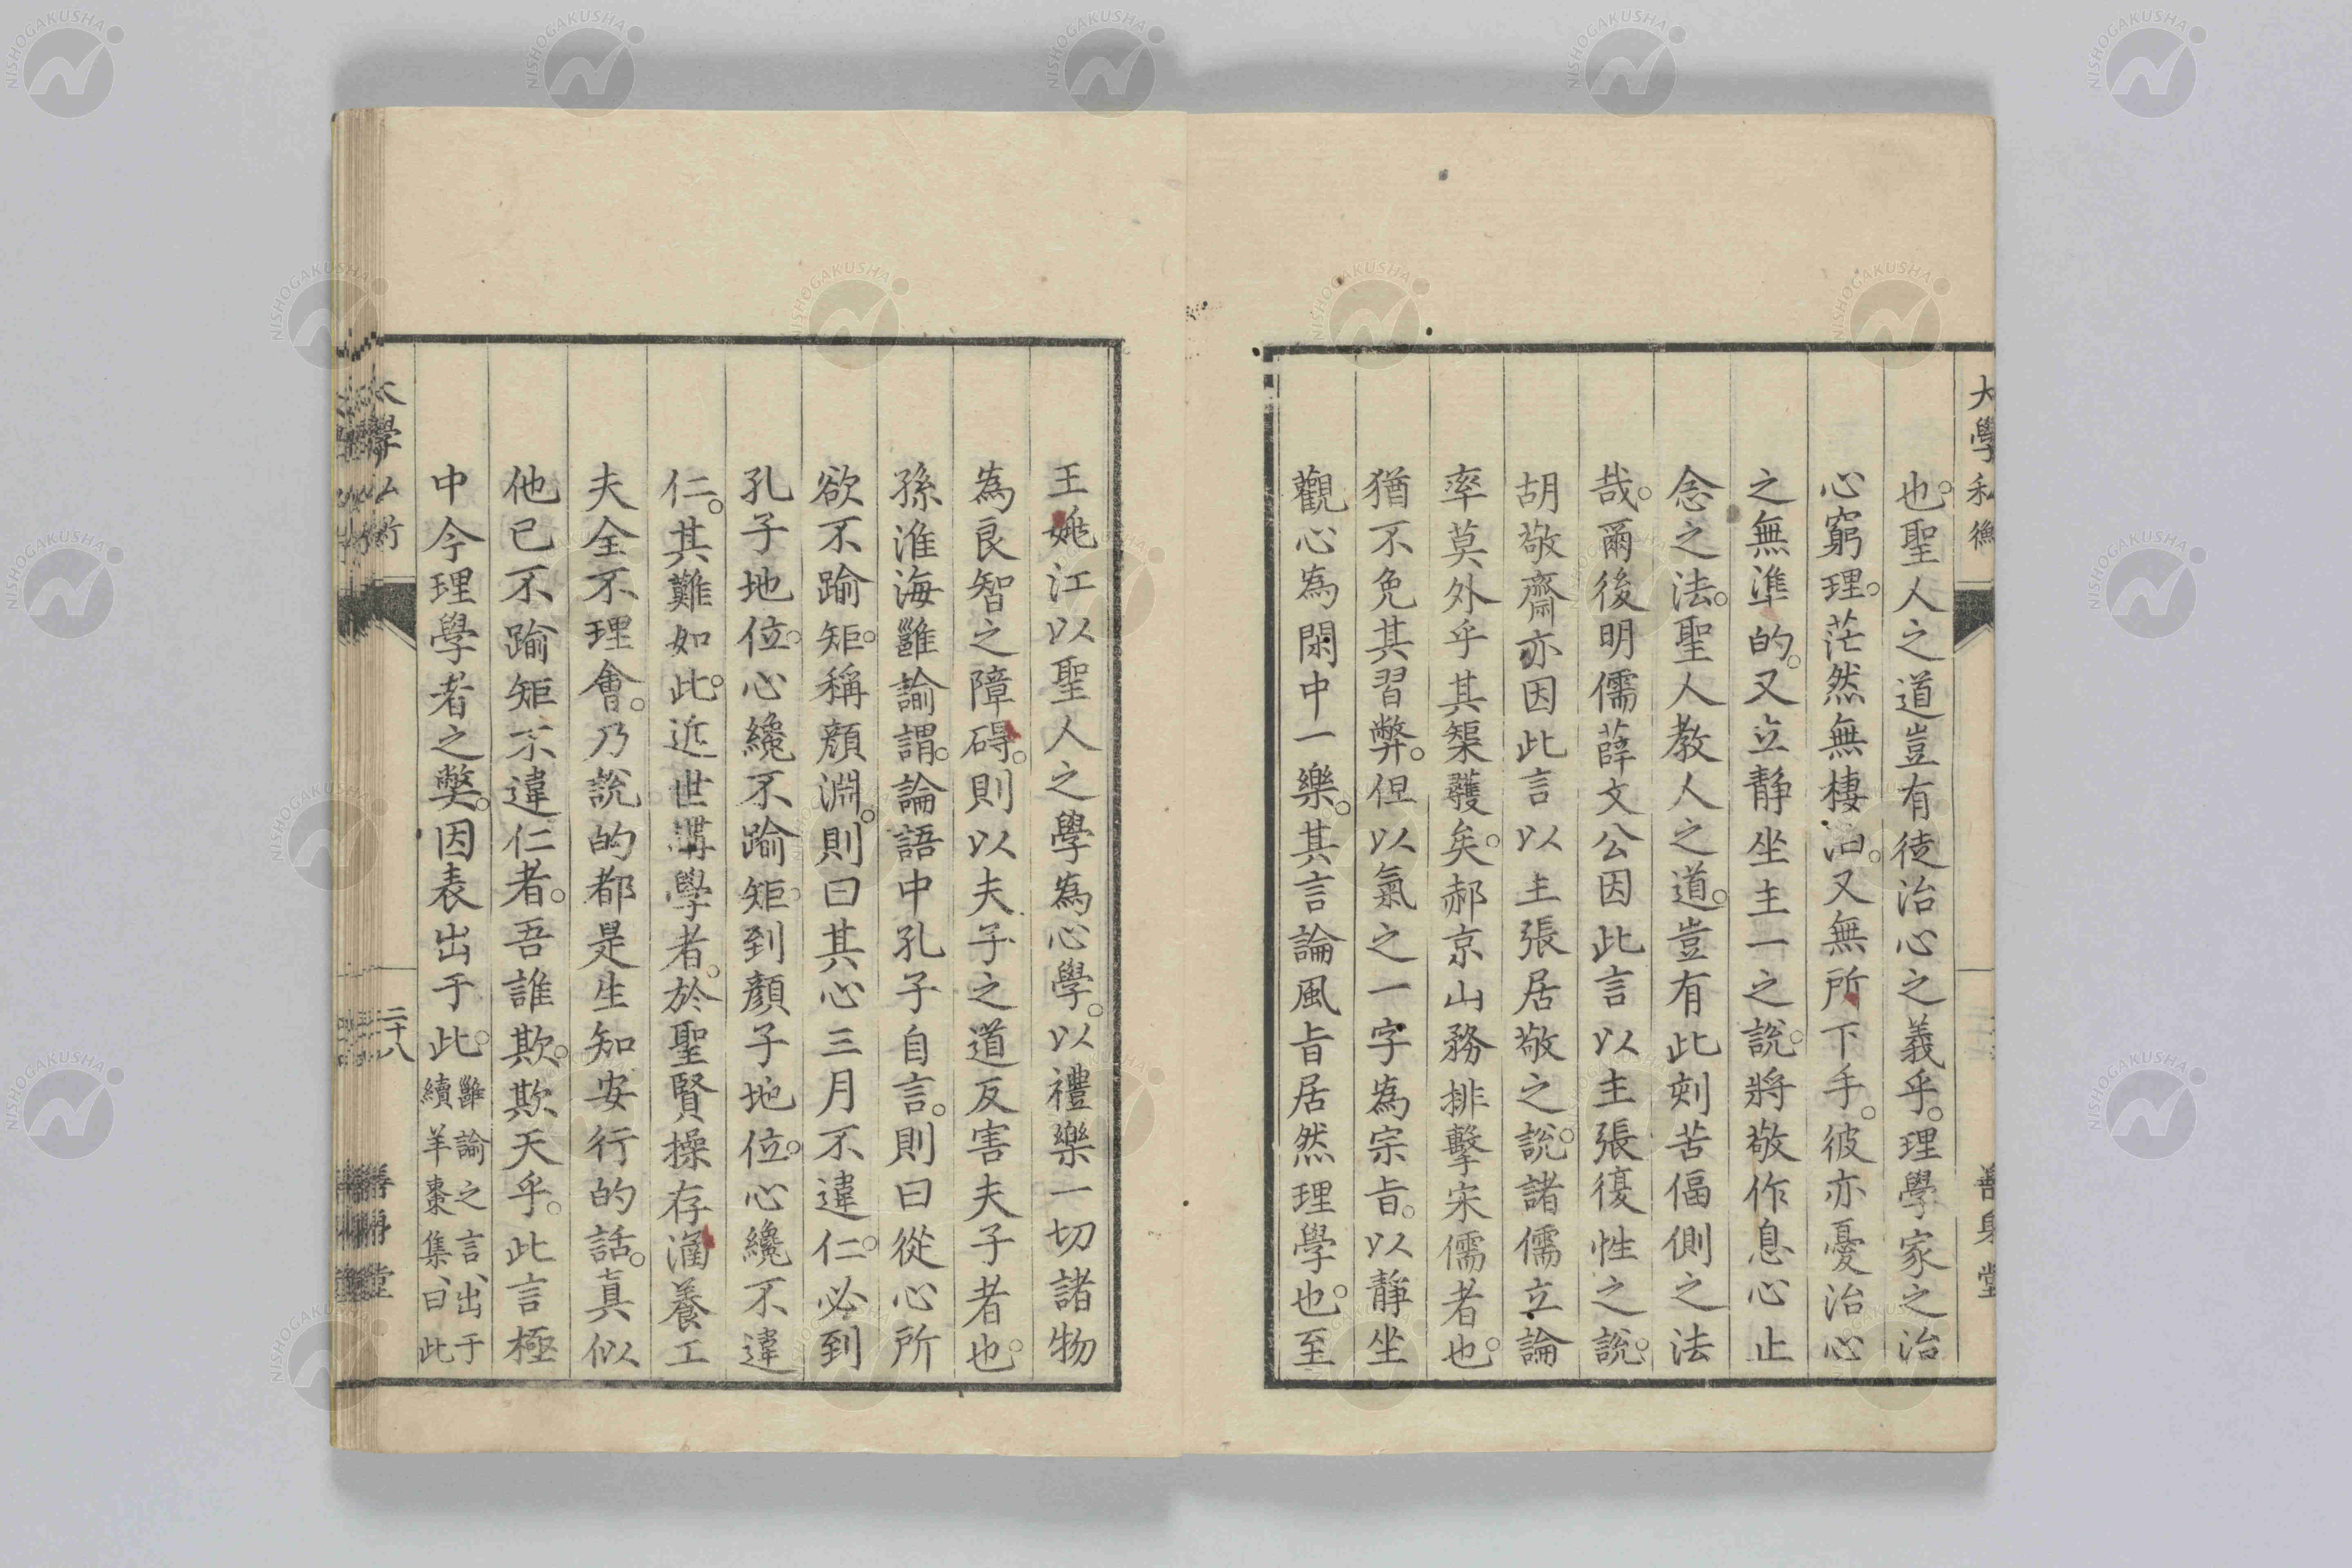 大學私衡
善身堂
也。聖人之道豈有徒治心之義乎。理學家之治
心窮理。茫然無棲泊。又無所下手。彼亦憂治心
之無準的。又立靜坐主一之說。將敬作息心止
念之法。聖人教人之道。豈有此刻苦偪側之法
哉。爾後明儒薛文公因此言以主張復性之說。
胡敬齋亦因此言以主張居敬之說。諸儒立論
率莫外乎其榘矱矣。郝京山務排擊宋儒者也。
猶不免其習弊。但以氣之一字為宗旨。以靜坐
觀心為閑中一樂。其言論風旨居然理學也。至
王姚江以聖人之學為心學。以禮樂一切諸物
為良智之障碍。則以夫子之道反害夫子者也。
孫淮海雝諭謂。論語中孔子自言。則曰從心所
欲不踰矩。稱顏淵。則曰其心三月不違仁。必到
孔子地位。心纔不踰矩。到顏子地位。心纔不違
仁。其難如此。近世講學者。於聖賢操存涵養工
夫全不理會。乃說的都是生知安行的話。真似
他已不踰矩不違仁者。吾誰欺。欺天乎。此言極
中今理學者之獘。因表出于此。雝諭之言、出于
續羊棗集、曰此
大學私衡
二十八
善身堂
NISHOGAKUSHA